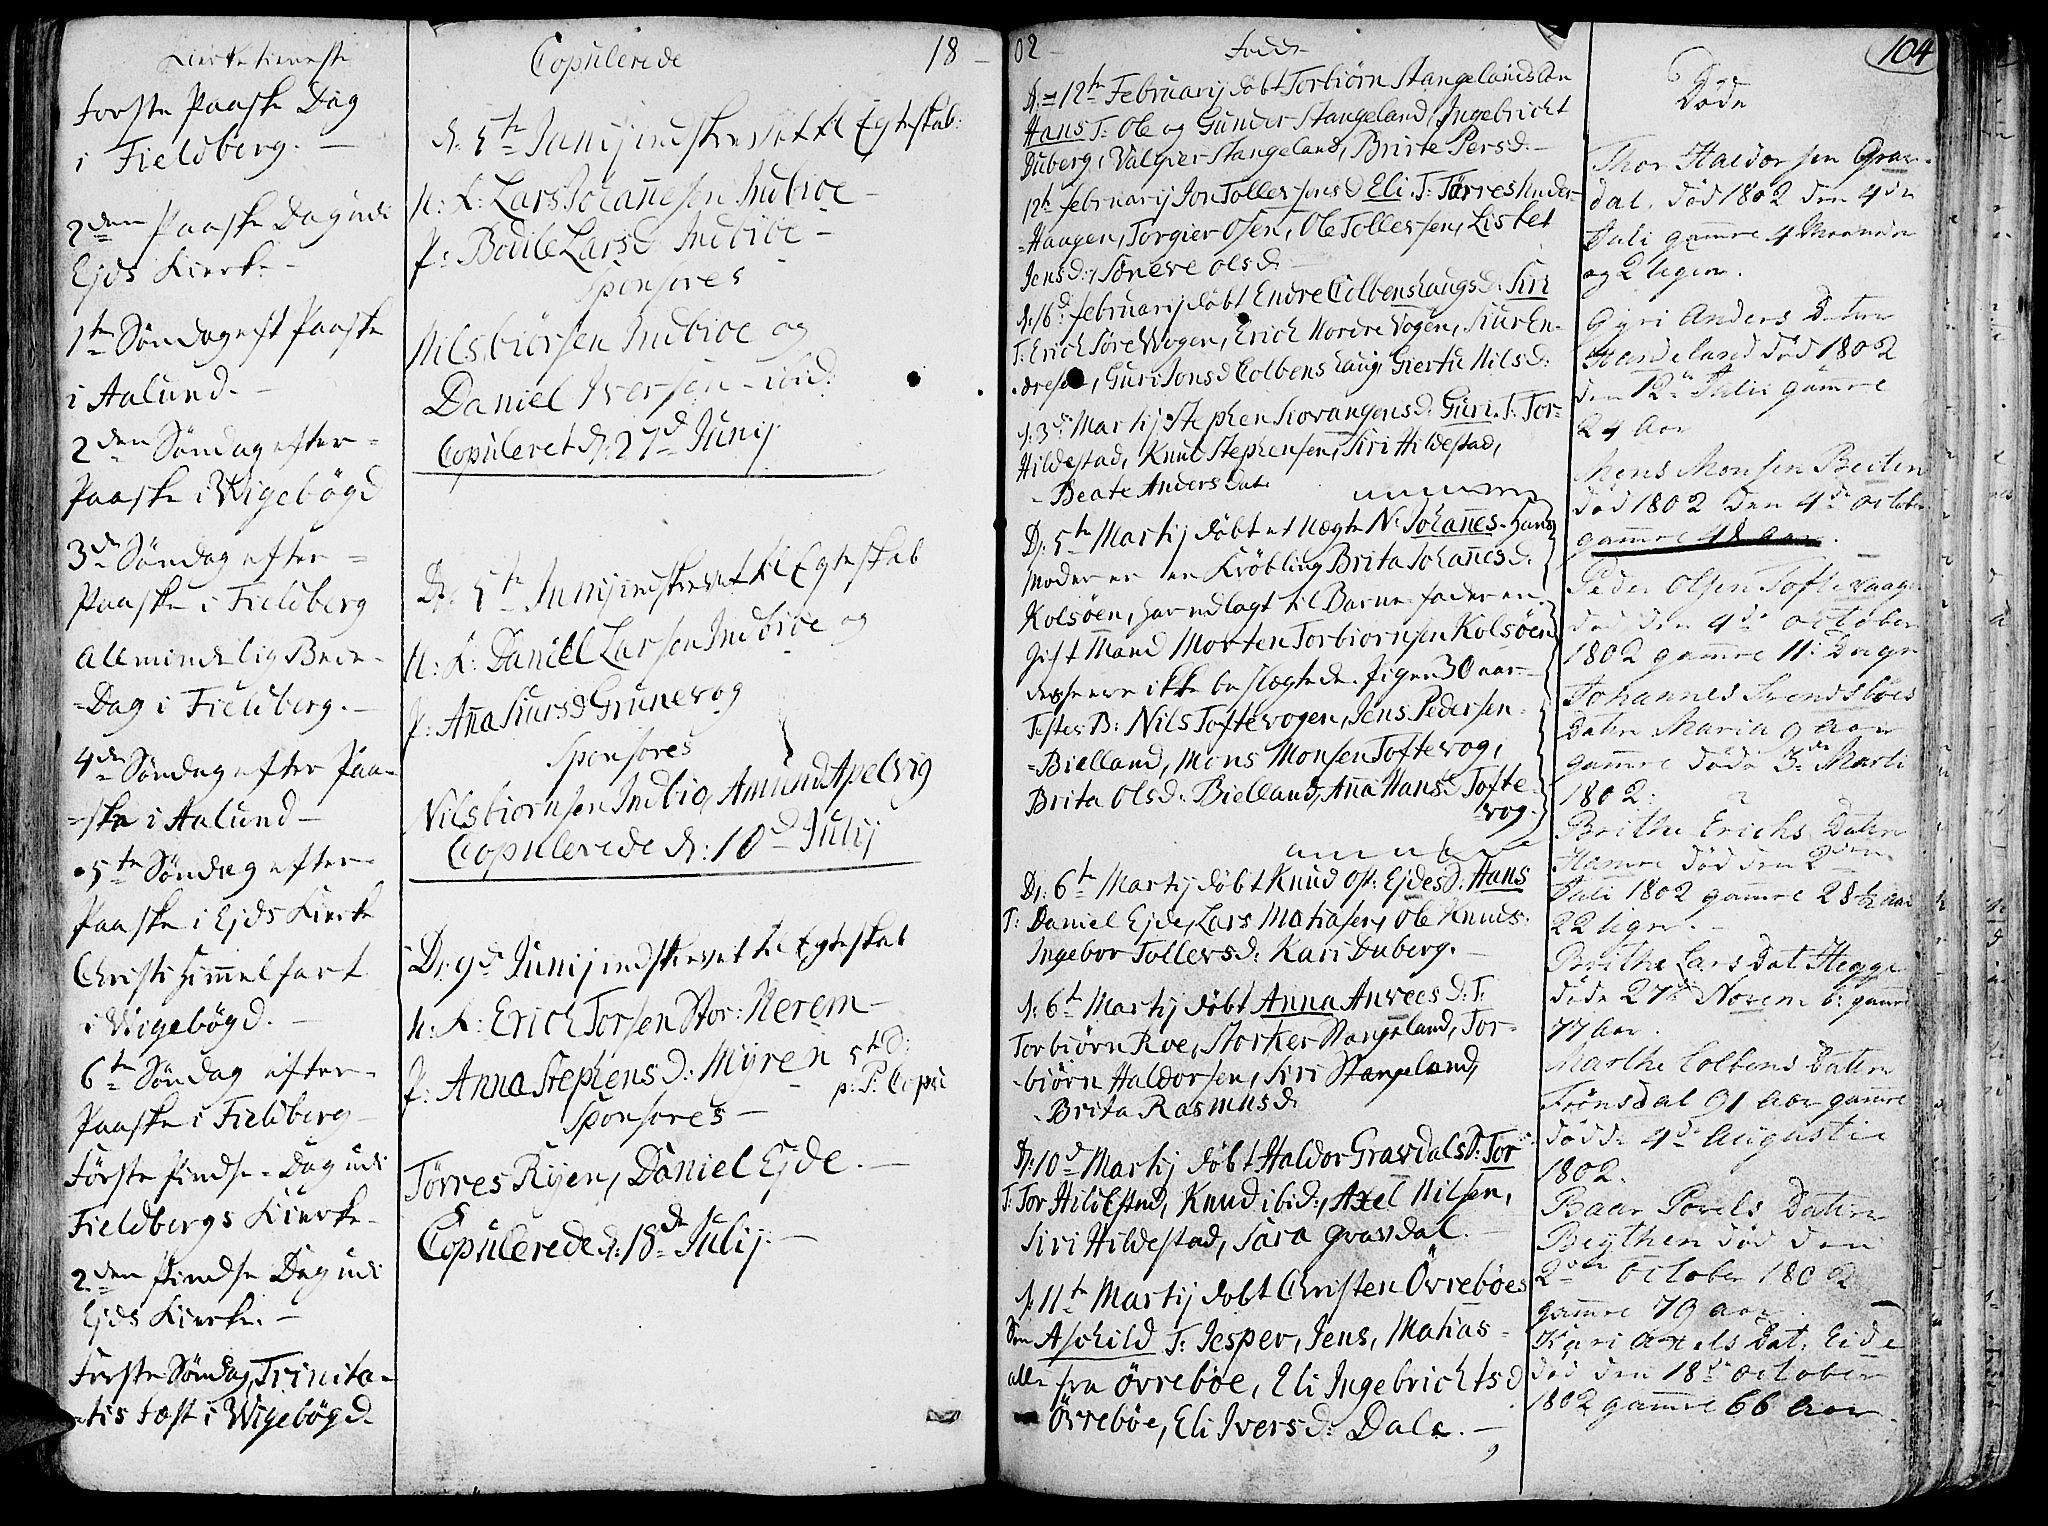 Kierketieneste
Forste Paaske Dag
i Fieldberg. —
2den Paaske Dag udi
Ejds Kierke —
1te Søndag eft Paaske
i Aalund. —
2den Søndag efter =
Paaske i Wigebøgd
3de Søndag efter =
Paaske i Fieldberg
Allmindelig Bede-
-Dag i Fieldberg. —
4de Søndag efter Paa-
=ske i Aalund —
5te Søndag efter-
Paaske i Ejds Kierke
Christi Himmelfart
i Wigebøgd. —
6te Søndag efter-
Paaske i Fieldberg
Første Pindse = Dag udi
Fieldbergs Kierke-
2den Pindse Dag udi
Ejds Kierke. —
Forste Søndag, Trinita-
-tis Fæst i Wigebøgd.
Copulerede 18 —
d: 5te Junij indskrevet til Egteskab:
U: K: Lars Johannesen Indbioe —
P: Bodile Larsd Indbioe —
Sponsores
Nils biørsen Indbioe og
Daniel Iversen - ibid:
Copuleret d: 27d Junij
D: 5te Junij indskrevet til Egteskab
U: K: Daniel Larsen Indbioe og
P: Anna Siursd Grunevog
Sponsores
Nilsbiornsen Indbio, Amund Apelvig
Copulerede d: 10d Julij
D: 9d Junij indskrevet til Egteskab
U: K: Erich Torsen Stor: Nerem —
P: Anna Stephens d: Mÿren 5td:
p: P: Copu
Sponsores —
Tørres Rÿen, Daniel Ejde. —
Copulerede d: 18de Julij: —
02 — Fødde
d: 12te Februarij døbt Torbiørn Stangelands Søn
Hans T: Ole og Gunder Stangeland, Ingebricht
Duberg, Valgier Stangeland, Brite Persd. —
12te februarij Jon Tollefsens d Eli T: Tørres Under-
-Haugen, Torgier Osen, Ole Tollefsen, Lisbet
Jensd:, Søneve Olsd: —
d: 16d: februarij døbt Endre Colbenshaugs d: Siri
T: Erich Søre Vogen, Erich Nordre Vogen, Siur En-
dresen, Guri Jonsd Colbenshaug, Giertu Nilsd:
d: 3d Martij Stephen Skovangens d: Guri. T: Tor-
Hildestad, Knud Stephensen, Siri Hildestad,
- Beate Anders Dat:
D: 5te Martij døbt et uægte N: Johannes. Hans
Moder er en Krøbling Brita Johannesd:
Kolsöen, har udlagt til Barne fader en
gift Mand Morten Torbiornsen Kolsøen
desse ere ikke beslægtede. Pigen 30 aar —
Testes B: Nils Toftevogen, Jens Pedersen-
-Bielland, Mons Monsen Toftevog,
Brita Olsd: Bielland, Anna Hansd Tofte-
vog.
D: 6te Martij døbt Knud Ost: Ejdes d: Hans
T: Daniel Ejde, Lars Mathiasen, Ole Knuds.
Ingebor Tollevsd: Kari Duberg. —
d: 6t Martij døbt Anna Anvees D: T:
Torbiørn Roe, Storker Stangeland, Tor-
-biørn Haldorsen, Siri Stangeland,
- Brita Rasmusd:
D: 10d Martij døbt Haldor Gravdals D: Tor
T: Tor Hildestad, Knud ibid:, Axel Nilsen,
Siri Hildestad, Sara Gravdal. —
d: 11te Martij døbt Christen Övrebøes
Søn Aschild T: Jesper, Jens, Mathias -
alle fra Övrebøe, Eli Ingebrichtsd
Övrebøe, Eli Iversd: Dale. —
104
Døde
Thor Haldorsen Grav-
dal, død 1802 den 4de
Juli gamle 4 Maaneder
og 2 Uger.
Gyri Anders Datter
Handeland død 1802
den 12te Julii gamle
24 Aar
Mons Monsen Beiten
død 1802 den 4de October
gamle 48 Aar.
Peder Olsen Toftevaage
død den 4de October
1802 gamle 11: Dage
Johannes Svendsbøes
Datter Maria 9 Aar
gamle døde 3de Marti
1802.
Brithe Erichs Datter
Hamre død den 2den
Juli 1802 gamle 28½ aar
22 Uger. —
Brithe Lars Dat Hegge
døde 27de Novemb: gamle
77 Aar.
Marthe Colbens Datter
Frönsdal 91 Aar gamle
døde 4de Augusti
1802.
Baar Povels Datter
Beythen død den
2den October 1802
gamle 79 aar
Kari Axels Dat, Eide
død den 18de October
1802 gamle 66 Aar.